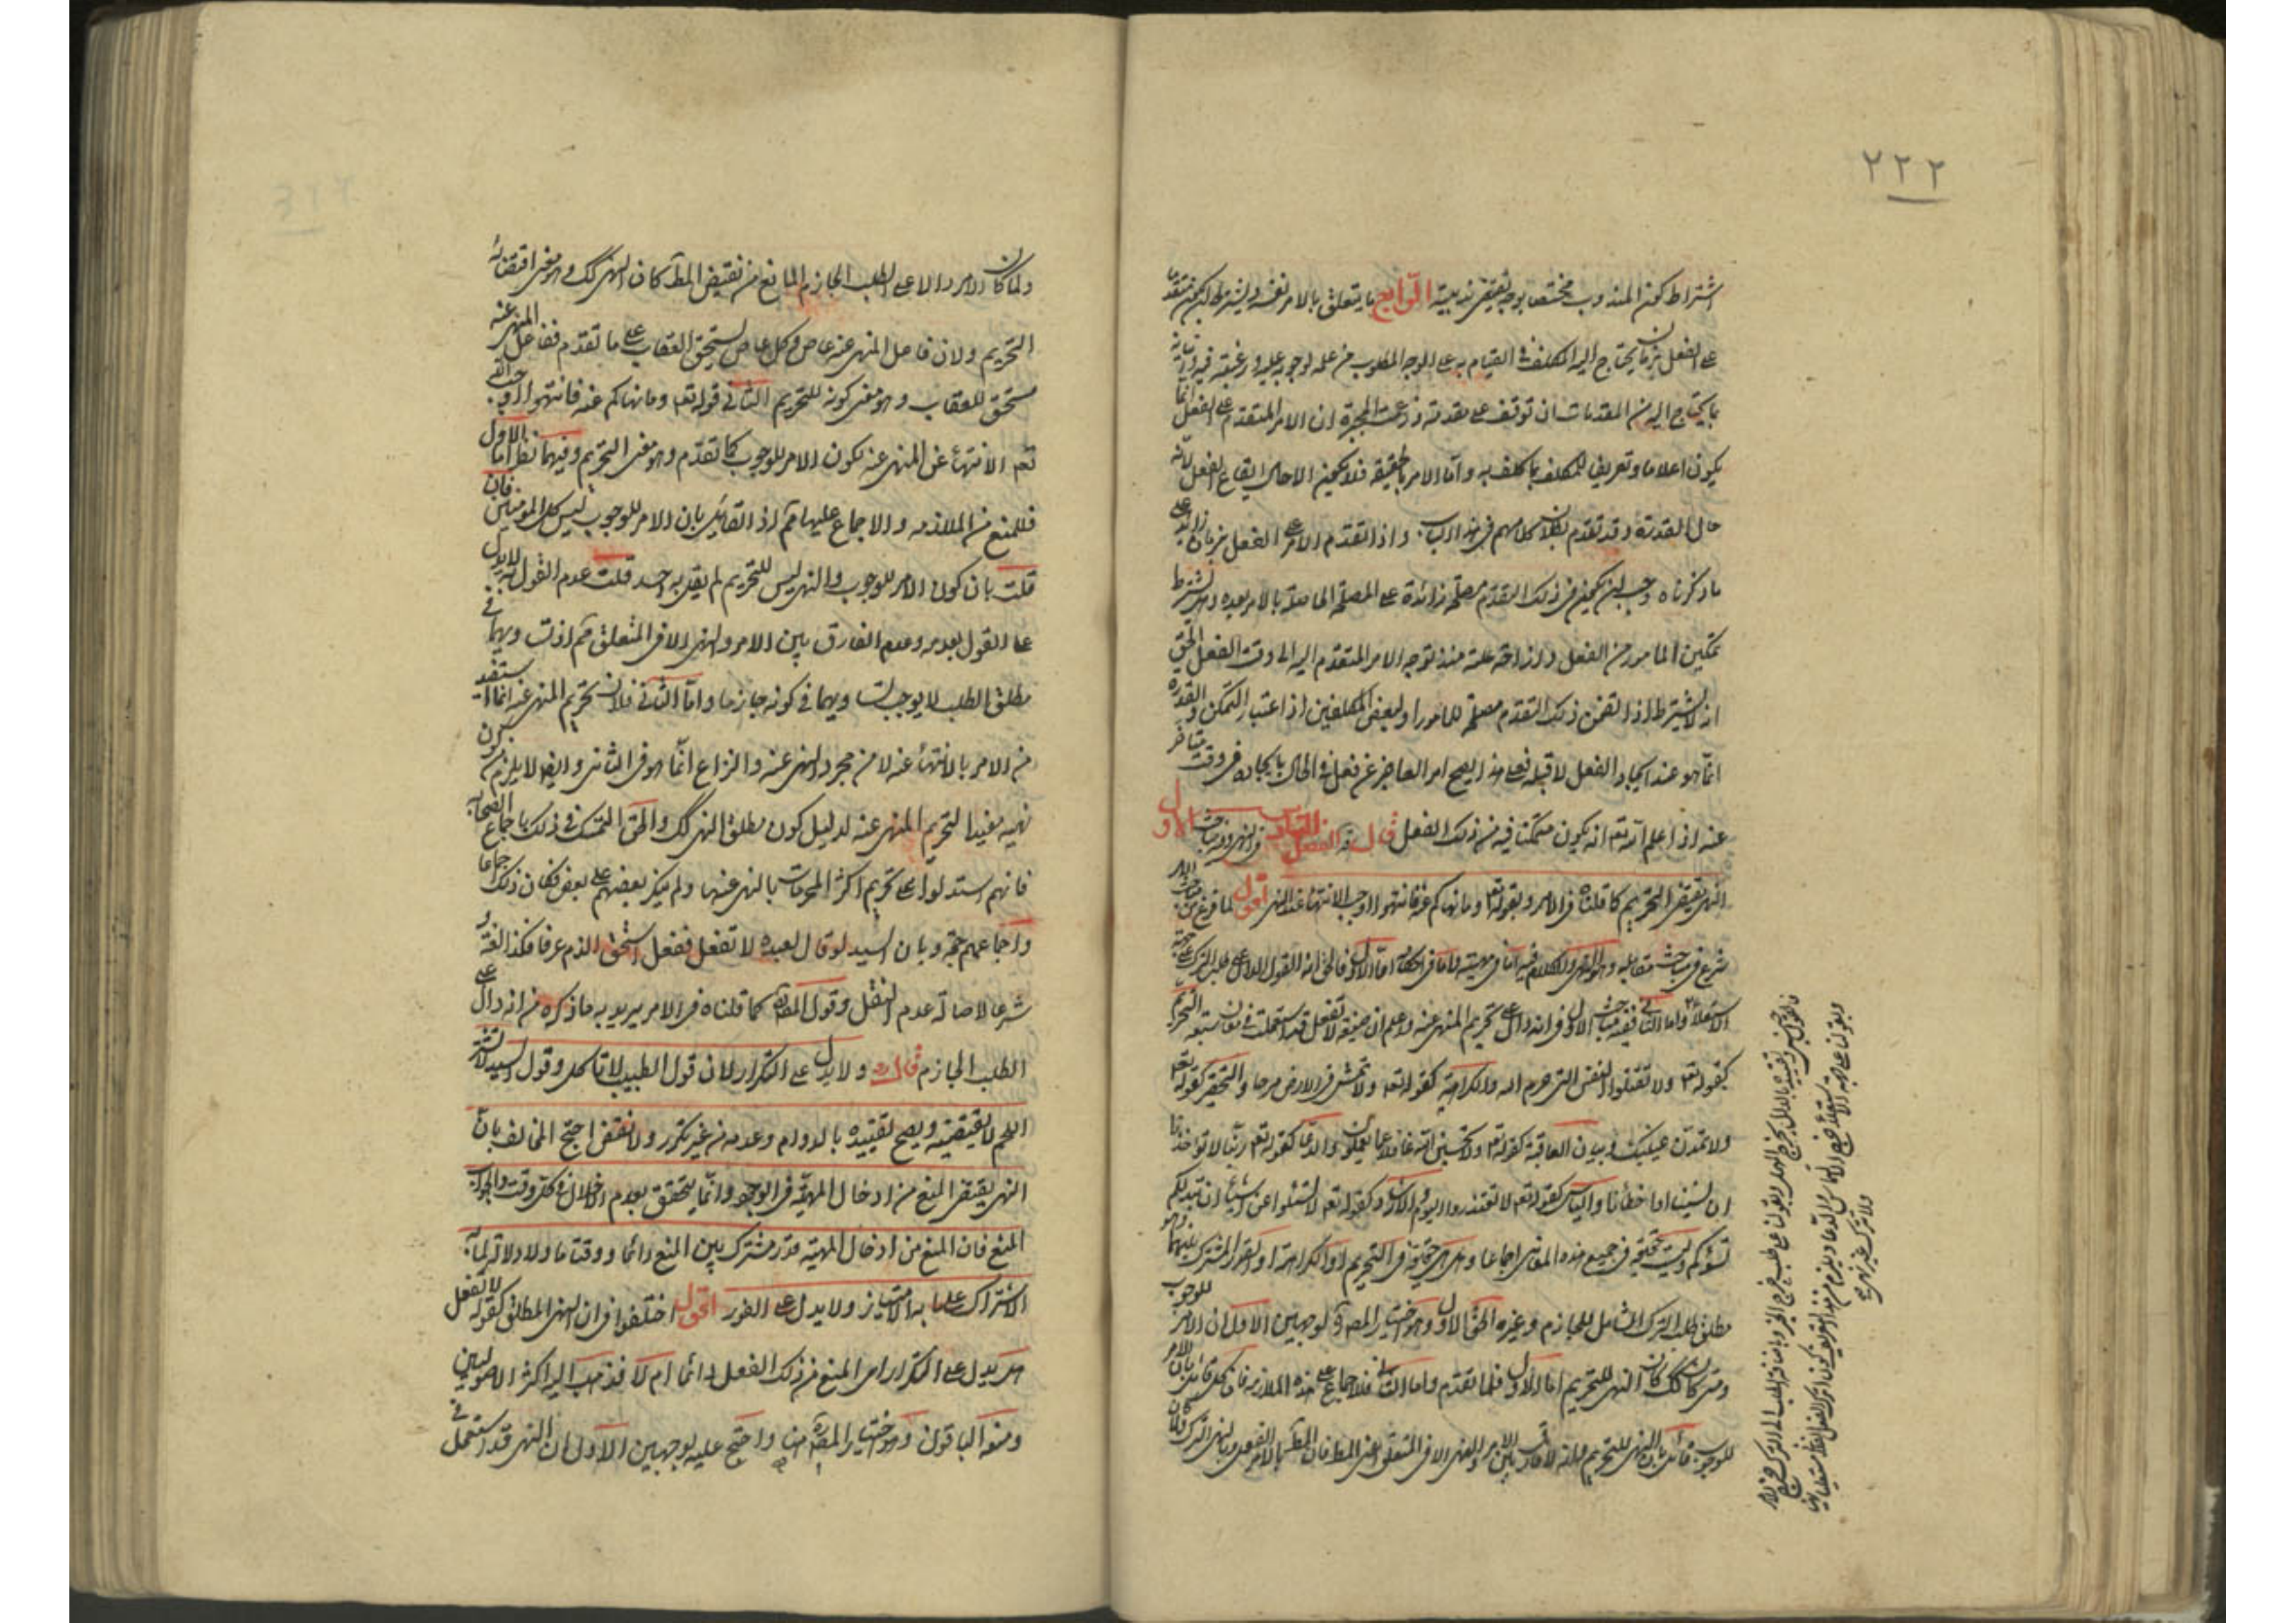 ٢٢٢
اشتراط كون المندوب مختصا بوجه يقتضى ندبيته الرابع ما يتعلق بالامر نفسه ويشترط لكونه متقدما
على الفعل بزمان يحتاج اليه المكلف في القيام به على الوجه المطلوب من علمه لوجوبه عليه ورغبته فيه واتيانه
بما يحتاج اليه من المقدمات ان توقف على مقدمة وزعمت المجبرة ان الامر المتقدم على الفعل انما
يكون اعلاما وتعريفا للمكلف بما كلف به واما الامر بالحقيقة فلا يكون الا حال ايقاع الفعل لانه
حال القدرة وقد تقدم بطلان كلامهم في هذا الباب واذا تقدم الامر على الفعل بزمان زائد على
ما ذكرناه وجب ان يكون في ذلك التقدم مصلحة زائدة على المصلحة الحاصلة بالامر بعده وهل يشترط
تمكين المامور من الفعل وازاحة علته منذ توجه الامر المتقدم اليه الى وقت الفعل الحق
انه لا يشترط اذا تضمن ذلك التقدم مصلحة للمامور او لبعض المكلفين اذ اعتبار التمكن والقدرة
انما هو عند ايجاد الفعل لا قبله فعلى هذا يصح امر العاجز عن فعل في الحال بايجاده في وقت متاخر
عنه اذا علم الله تعه انه يكون متمكنا فيه من ذلك الفعل قال ره الفصل الثالث في النهى وفيه مباحث الاول
النهى يقتضى التحريم كما قلناه في الامر وبقوله تعه وما نهاكم عنه فانتهوا اوجب الانتهاء عند النهى اقول لما فرغ من مباحث الامر
شرع في مباحث مقابله وهو النهى والكلام فيه اما في مهيته واما في احكامه اما الاول فالحق انه القول الدال على طلب الترك على جهة
الاستعلاء واما الثانى ففيه مباحث الاول في انه دال على تحريم المنهى عنه واعلم ان صيغة لا تفعل قد استعملت في معان سبعة التحريم
كقوله تعه ولا تقتلوا النفس التى حرم الله والكراهية كقوله تعه ولا تمش في الارض مرحا والتحقير كقوله تعه
ولا تمدن عينيك وبيان العاقبة كقوله تعه ولا تحسبن الله غافلا عما يعملون والدعا كقوله تعه ربنا لا تواخذنا
ان نسينا او اخطأنا والياس كقوله تعه لا تعتذروا اليوم والارشاد كقوله تعه لا تسئلوا عن اشياء ان تبد لكم
تسؤكم وليست حقيقة في جميع هذه المعانى اجماعا وهل هى حقيقة في التحريم او الكراهة او القدر المشترك بينهما وهو
مطلق طلب الترك الشامل للجازم وغيره الحق الاول وهو اختيار المصه لوجهين الاول ان الامر للوجوب
ومتى كان كك كان النهى للتحريم اما الاول فلما تقدم واما الثانى فللاجماع على هذه الملازمة فان كل قائل بان الامر
للوجوب قائل بان النهى للتحريم ولانه لا فارق بين الامر والنهى الا في المتعلق اعنى المطلوب فان المط بالامر الفعل وبالنهى الترك
ولما كان الامر دالا على الطلب الجازم المانع من نقيض المط كان النهى كك وهو معنى اقتضائه
التحريم ولان فاعل المنهى عنه عاص وكل عاص يستحق العقاب على ما تقدم ففاعل المنهى عنه
مستحق للعقاب وهو معنى كونه للتحريم الثانى قوله تعه وما نهاكم عنه فانتهوا اوجب الله
تعه الانتهاء عن المنهى عنه لكون الامر للوجوب كما تقدم وهو معنى التحريم وفيهما نظر اما الاول
فللمنع من الملازمة والاجماع عليها ثم اذ القائل بان الامر للوجوب ليس كل المومنين فان
قلت بان كون الامر للوجوب والنهى ليس للتحريم لم يقل به احد قلت عدم القول به لا يدل
على القول بعدمه وعدم الفارق بين الامر والنهى الا في المتعلق ثم اذ تساويهما في
مطلق الطلب لا يوجب تساويهما في كونه جازما واما الثانى فلان تحريم المنهى عنه انما استفيد
من الامر بالانتهاء عنه لا من مجرد النهى عنه والنزاع انما هو في الثانى وايضا لا يلزم من كون
نهيه مفيدا لتحريم المنهى عنه لدليل كون مطلق النهى كك والحق التمسك في ذلك باجماع الصحابة
فانهم استدلوا على تحريم اكثر المحرمات بالنهى عنها ولم ينكر بعضهم على بعض فكان ذلك اجماعا
واجماعهم حجة وبان السيد لو قال لعبده لا تفعل ففعل استحق الذم عرفا فكذا لغة و
شرعا لاصالة عدم النقل وقول المصه كما قلناه في الامر يريد به ما ذكره من انه دال على
الطلب الجازم قال ره ولا يدل على التكرار لان قول الطبيب لا تاكل وقول السيد لا تشتر
اللحم لا يقتضيه ويصح تقييده بالدوام وعدمه من غير تكرر ولا نقض احتج المخالف بان
النهى يقتضى المنع من ادخال المهية في الوجود وانما يتحقق بعدم الاخلال في كل وقت والجواب
المنع فان المنع من ادخال المهية قدر مشترك بين المنع دائما ووقتا ما ولا دلالة لما به
الاشتراك على ما به الامتياز ولا يدل على الفور اقول اختلفوا في ان النهى المطلق كقوله لا تفعل
هل يدل على التكرار اى المنع من ذلك الفعل دائما ام لا فذهب اليه اكثر الاصوليين
ومنعه الباقون وهو اختيار المصه هنا واحتج عليه بوجهين الاول ان النهى قد استعمل في